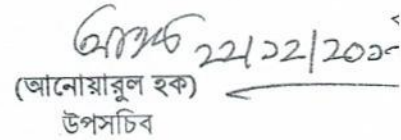 ২২/১২/২০১
(আনোয়ারুল হক)
উপসচিব